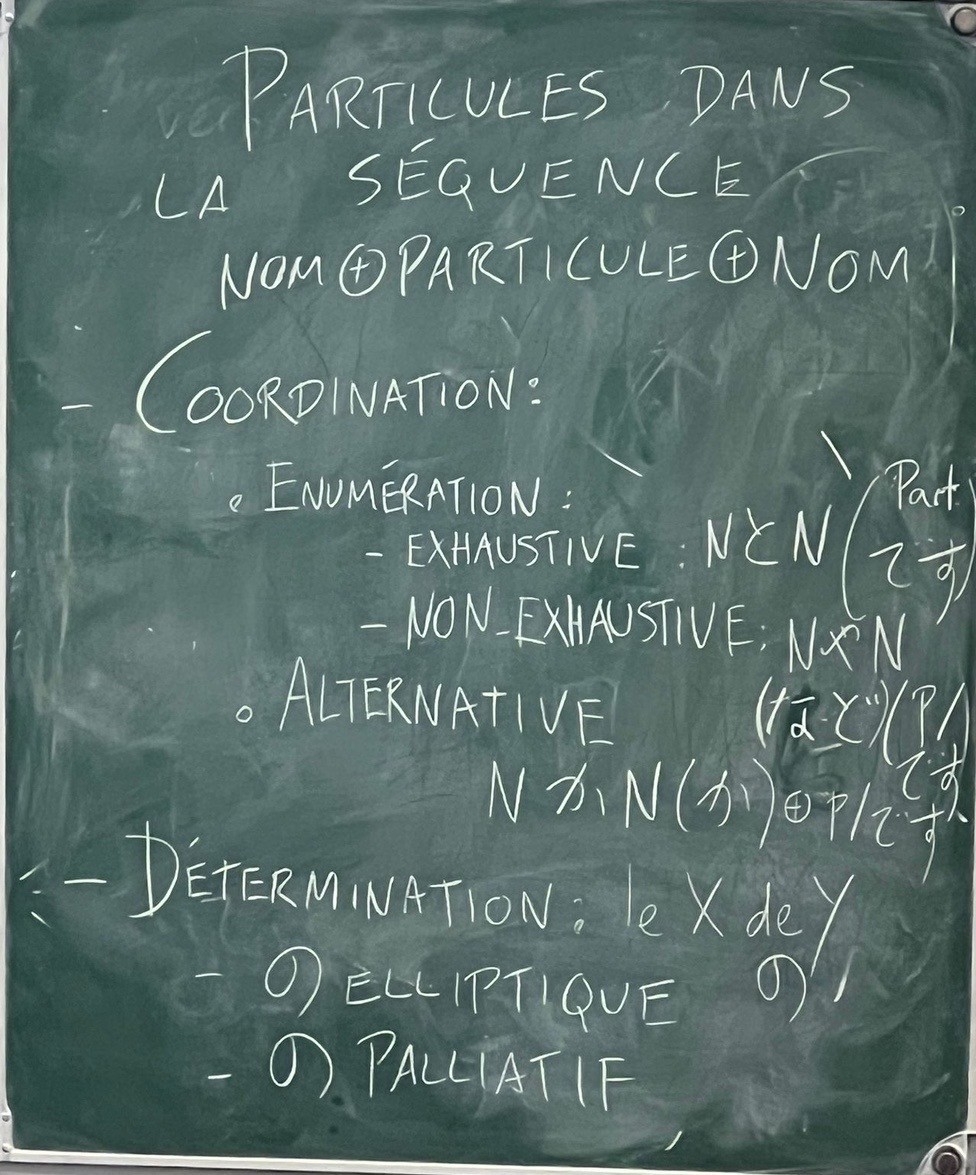 PARTICULES DANS
LA SÉQUENCE
NOM⊕PARTICULE⊕NOM
- COORDINATION:
◦ ENUMÉRATION :
- EXHAUSTIVE : NとN (Part
です)
- NON-EXHAUSTIVE: NやN
(など)(P/
です)
◦ ALTERNATIVE
NかN(か)⊕P/です
- DÉTERMINATION: le X de Y
の
- の ELLIPTIQUE
- の PALLIATIF